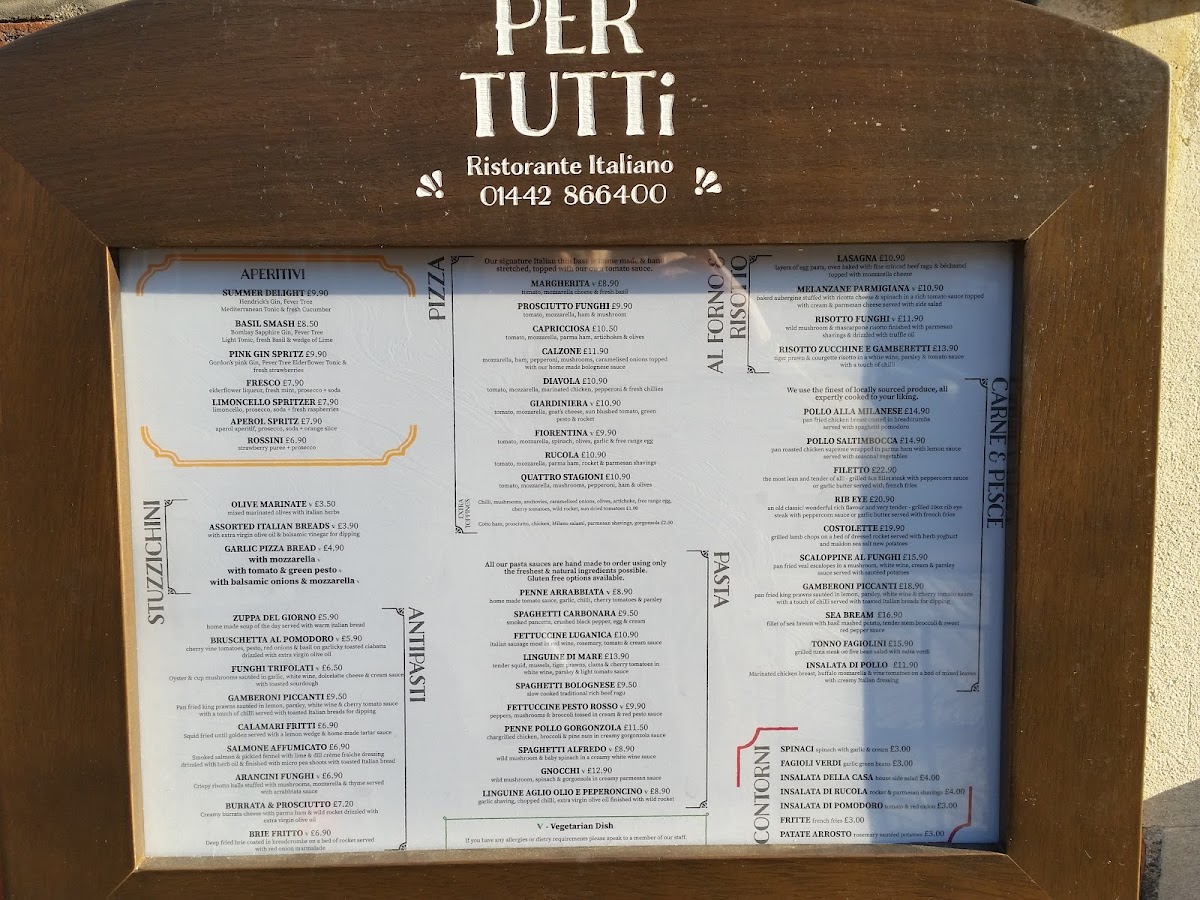 PER
TUTTi
Ristorante Italiano
01442 866400
APERITIVI
SUMMER DELIGHT £9.90
Hendrick's Gin, Fever Tree
Mediterranean Tonic & fresh Cucumber
BASIL SMASH £8.50
Bombay Sapphire Gin, Fever Tree
Light Tonic, fresh Basil & wedge of Lime
PINK GIN SPRITZ £9.90
Gordon's pink Gin, Fever Tree Elderflower Tonic &
fresh strawberries
FRESCO £7.90
elderflower liqueur, fresh mint, prosecco + soda
LIMONCELLO SPRITZER £7.90
limoncello, prosecco, soda + fresh raspberries
APEROL SPRITZ £7.90
aperol aperitif, prosecco, soda + orange slice
ROSSINI £6.90
strawberry puree + prosecco
STUZZICHINI
OLIVE MARINATE v £3.50
mixed marinated olives with italian herbs
ASSORTED ITALIAN BREADS v £3.90
with extra virgin olive oil & balsamic vinegar for dipping
GARLIC PIZZA BREAD v £4.90
with mozzarella v
with tomato & green pesto v
with balsamic onions & mozzarella v
ANTIPASTI
ZUPPA DEL GIORNO £5.90
home made soup of the day served with warm italian bread
BRUSCHETTA AL POMODORO v £5.90
cherry vine tomatoes, pesto, red onions & basil on garlicky toasted ciabatta
drizzled with extra virgin olive oil
FUNGHI TRIFOLATI v £6.50
Oyster & cup mushrooms sautéed in garlic, white wine, dolcelatte cheese & cream sauce
with toasted sourdough
GAMBERONI PICCANTI £9.50
Pan fried king prawns sautéed in lemon, parsley, white wine & cherry tomato sauce
with a touch of chilli served with toasted Italian breads for dipping
CALAMARI FRITTI £6.90
Squid fried until golden served with a lemon wedge & home-made tartar sauce
SALMONE AFFUMICATO £6.90
Smoked salmon & pickled fennel with lime & dill crème fraîche dressing
drizzled with herb oil & finished with micro pea shoots with toasted Italian bread
ARANCINI FUNGHI v £6.90
Crispy risotto balls stuffed with mushrooms, mozzarella & thyme served
with arrabbiata sauce
BURRATA & PROSCIUTTO £7.20
Creamy burrata cheese with parma ham & wild rocket drizzled with
extra virgin olive oil
BRIE FRITTO v £6.90
Deep fried brie coated in breadcrumbs on a bed of rocket served
with red onion marmalade
PIZZA
Our signature Italian thin base is home made & hand
stretched, topped with our own tomato sauce.
MARGHERITA v £8.90
tomato, mozzarella cheese & fresh basil
PROSCIUTTO FUNGHI £9.90
tomato, mozzarella, ham & mushroom
CAPRICCIOSA £10.50
tomato, mozzarella, parma ham, artichokes & olives
CALZONE £11.90
mozzarella, ham, pepperoni, mushrooms, caramelised onions topped
with our home made bolognese sauce
DIAVOLA £10.90
tomato, mozzarella, marinated chicken, pepperoni & fresh chillies
GIARDINIERA v £10.90
tomato, mozzarella, goat's cheese, sun blushed tomato, green
pesto & rocket
FIORENTINA v £9.90
tomato, mozzarella, spinach, olives, garlic & free range egg
RUCOLA £10.90
tomato, mozzarella, parma ham, rocket & parmesan shavings
QUATTRO STAGIONI £10.90
tomato, mozzarella, mushrooms, pepperoni, ham & olives
EXTRA
TOPPINGS
Chilli, mushrooms, anchovies, caramelised onions, olives, artichoke, free range egg,
cherry tomatoes, wild rocket, sun dried tomatoes £1.90
Cotto ham, prosciutto, chicken, Milano salami, parmesan shavings, gorgonzola £2.00
PASTA
All our pasta sauces are hand made to order using only
the freshest & natural ingredients possible.
Gluten free options available.
PENNE ARRABBIATA v £8.90
home made tomato sauce, garlic, chilli, cherry tomatoes & parsley
SPAGHETTI CARBONARA £9.50
smoked pancetta, crushed black pepper, egg & cream
FETTUCCINE LUGANICA £10.90
italian sausage meat in red wine, rosemary, tomato & cream sauce
LINGUINE DI MARE £13.90
tender squid, mussels, tiger prawns, clams & cherry tomatoes in
white wine, parsley & light tomato sauce
SPAGHETTI BOLOGNESE £9.50
slow cooked traditional rich beef ragu
FETTUCCINE PESTO ROSSO v £9.90
peppers, mushrooms & broccoli tossed in cream & red pesto sauce
PENNE POLLO GORGONZOLA £11.50
chargrilled chicken, broccoli & pine nuts in creamy gorgonzola sauce
SPAGHETTI ALFREDO v £8.90
wild mushroom & baby spinach in a creamy white wine sauce
GNOCCHI v £12.90
wild mushroom, spinach & gorgonzola in creamy parmesan sauce
LINGUINE AGLIO OLIO E PEPERONCINO v £8.90
garlic shaving, chopped chilli, extra virgin olive oil finished with wild rocket
V - Vegetarian Dish
If you have any allergies or dietry requirements please speak to a member of our staff.
AL FORNO &
RISOTTO
LASAGNA £10.90
layers of egg pasta, oven baked with fine minced beef ragu & béchamel
topped with mozzarella cheese
MELANZANE PARMIGIANA v £10.90
baked aubergine stuffed with ricotta cheese & spinach in a rich tomato sauce topped
with cream & parmesan cheese served with side salad
RISOTTO FUNGHI v £11.90
wild mushroom & mascarpone risotto finished with parmesan
shavings & drizzled with truffle oil
RISOTTO ZUCCHINE E GAMBERETTI £13.90
tiger prawn & courgette risotto in a white wine, parsley & tomato sauce
with a touch of chilli
CARNE & PESCE
We use the finest of locally sourced produce, all
expertly cooked to your liking.
POLLO ALLA MILANESE £14.90
pan fried chicken breast coated in breadcrumbs
served with spaghetti pomodoro
POLLO SALTIMBOCCA £14.90
pan roasted chicken supreme wrapped in parma ham with lemon sauce
served with seasonal vegetables
FILETTO £22.90
the most lean and tender of all - grilled 8oz fillet steak with peppercorn sauce
or garlic butter served with french fries
RIB EYE £20.90
an old classic wonderful rich flavour and very tender - grilled 10oz rib eye
steak with peppercorn sauce or garlic butter served with french fries
COSTOLETTE £19.90
grilled lamb chops on a bed of dressed rocket served with herb yoghurt
and maldon sea salt new potatoes
SCALOPPINE AL FUNGHI £15.90
pan fried veal escalopes in a mushroom, white wine, cream & parsley
sauce served with sautéed potatoes
GAMBERONI PICCANTI £18.90
pan fried king prawns sautéed in lemon, parsley, white wine & cherry tomato sauce
with a touch of chilli served with toasted Italian breads for dipping
SEA BREAM £16.90
fillet of sea bream with basil mashed potato, tender stem broccoli & sweet
red pepper sauce
TONNO FAGIOLINI £15.90
grilled tuna steak on five bean salad with salsa verde
INSALATA DI POLLO £11.90
Marinated chicken breast, buffalo mozzarella & vine tomatoes on a bed of mixed leaves
with creamy Italian dressing
CONTORNI
SPINACI spinach with garlic & cream £3.00
FAGIOLI VERDI garlic green beans £3.00
INSALATA DELLA CASA house side salad £4.00
INSALATA DI RUCOLA rocket & parmesan shavings £4.00
INSALATA DI POMODORO tomato & red onion £3.00
FRITTE french fries £3.00
PATATE ARROSTO rosemary sautéed potatoes £3.00